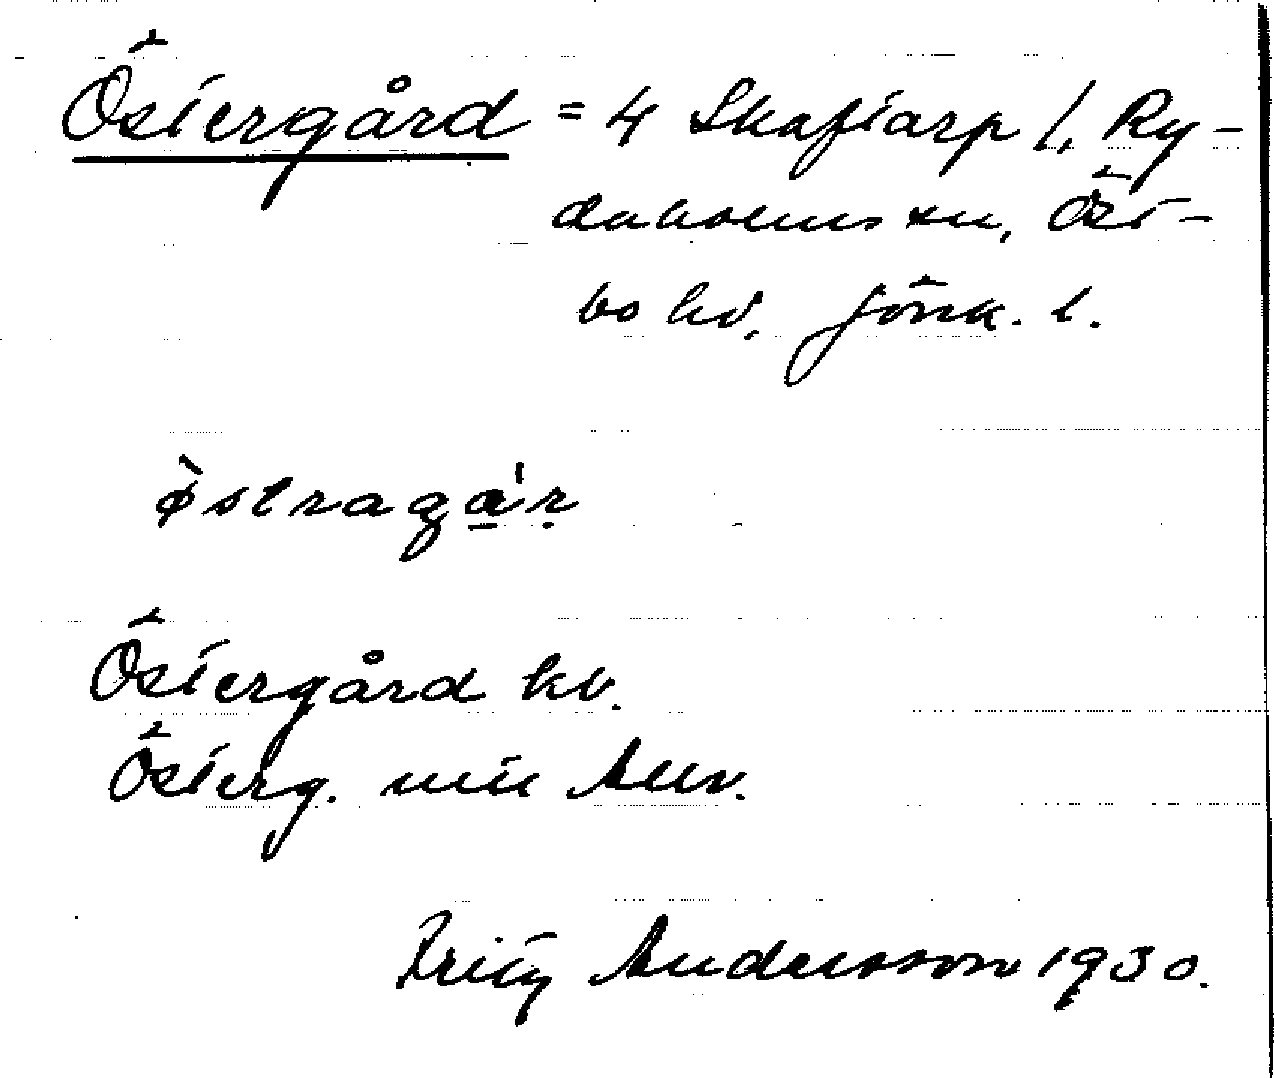 Östergård = 4 Skaftarp /, Ry-
daholms sn, Öst-
bo hd, Jönk. l.
östraga̱'ṛ
Östergård kv.
Österg. mtl
Fritz Andersson 1930.